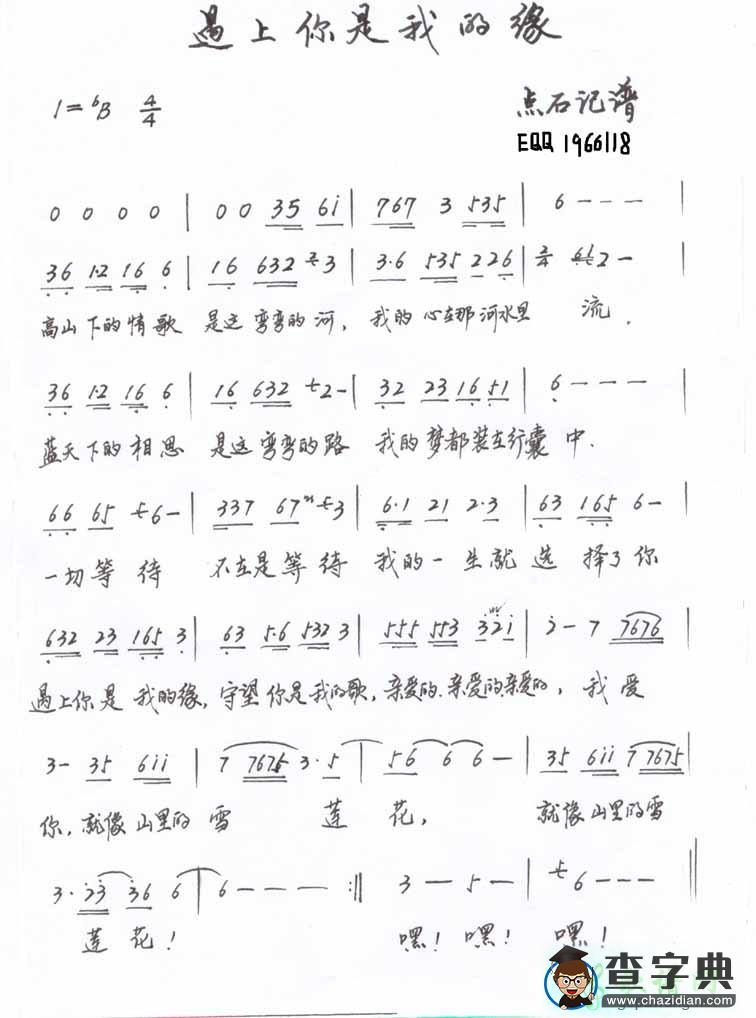 遇上你是我的缘
1=♭B 4/4 点石记谱
EQQ 1966118
0 0 0 0 | 0 0 35 6i | 767 3 535 | 6 - - - |
36 1·2 16 6 | 16 632 3 | 3·6 535 226 | 2/4 2 - |
高山下的情歌 是这弯弯的河, 我的心在那河水里 流.
36 1·2 16 6 | 16 632 2 - | 32 23 16 51 | 6 - - - |
蓝天下的相思 是这弯弯的路 我的梦都装在行囊中.
66 65 6 - | 337 67 3 | 6·1 21 2·3 | 63 165 6 - |
一切等待 不在是等待 我的一生就选择了你
632 23 165 3 | 63 5·6 532 3 | 555 553 32i | 2 - 7 7676 |
遇上你是我的缘, 守望你是我的歌, 亲爱的.亲爱的.亲爱的, 我爱
3 - 35 6ii | 7 7675 3·5 | 56 6 6 - | 35 6ii 7 7675 |
你, 就像山里的雪 莲花, 就像山里的雪
3·23 36 6 | 6 - - - :|| 3 - 5 - | 6 - - - ||
莲花! 嘿! 嘿! 嘿!
查字典
www.chazidian.com